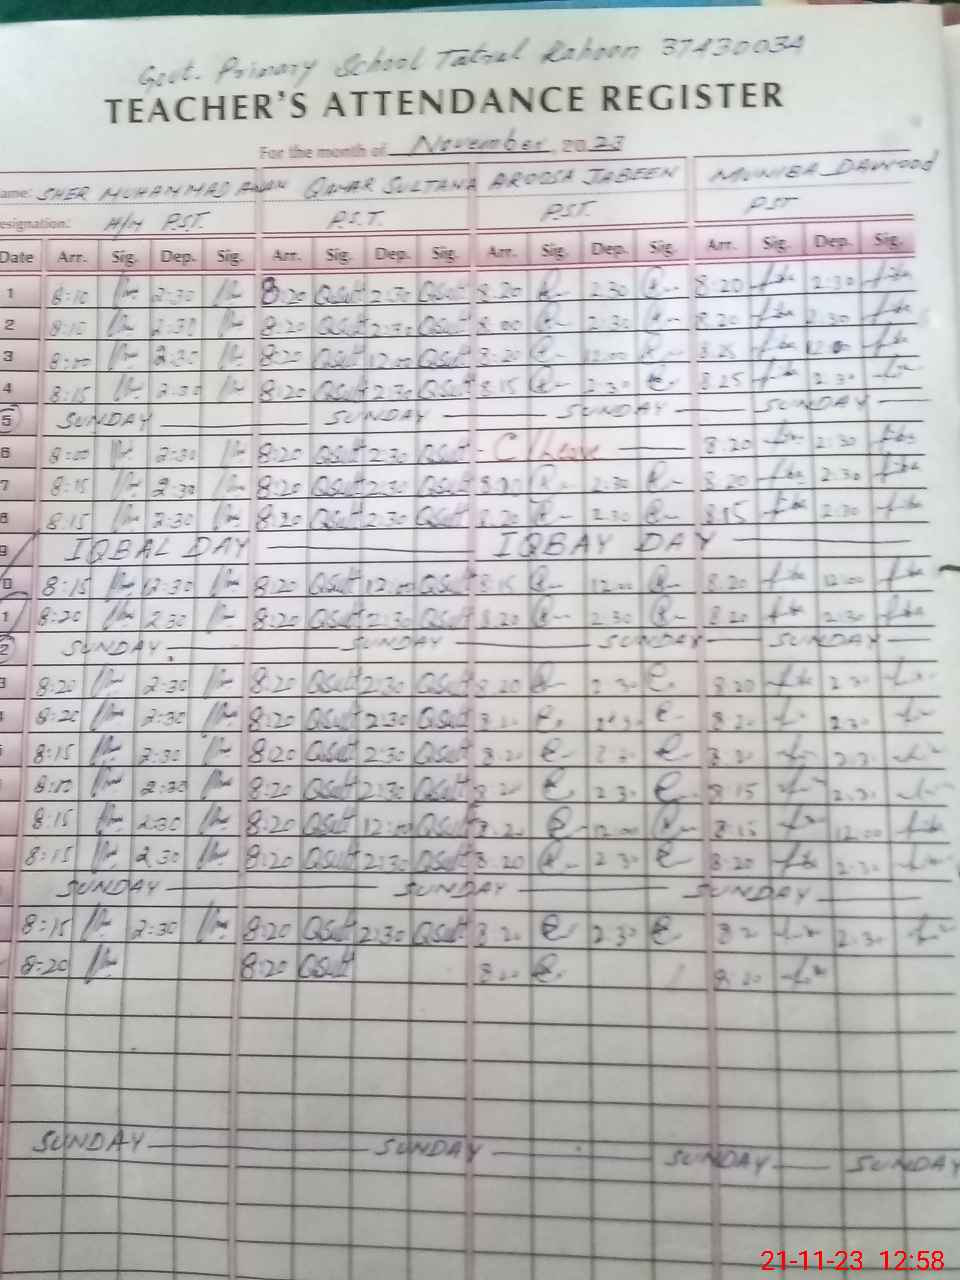 Govt. Primary School Tatral Kahoon 37430034
TEACHER'S ATTENDANCE REGISTER
For the month of November, 2023
ame: SHER MUHAMMAD QAMAR SULTANA AROOSA JABEEN MUNIBA DAWOOD
esignation: H/M P.S.T. P.S.T. P.S.T. PST
Date Arr. Sig. Dep. Sig. Arr. Sig. Dep. Sig. Arr. Sig. Dep. Sig. Arr. Sig. Dep. Sig.
1 8:10 2:30 8:20 QSult 2:30 QSult 8.20 2.30 8:20 2:30
2 8:10 2:30 8:20 QSult 2:30 QSult 8.00 2:30 8.20 2:30
3 8:00 2:30 8:20 QSult 12:00 QSult 8:20 12:00 8.25 12 00
4 8:15 2:30 8:20 QSult 2:30 QSult 8.15 2:30 8.25 2:30
5 SUNDAY SUNDAY SUNDAY SUNDAY
6 8:00 2:30 8:20 QSult 2:30 QSult C/Leave 8.20 2:30
7 8:15 2:30 8:20 QSult 2:30 QSult 8.20 2:30 8.20 2:30
8 8:15 2:30 8:20 QSult 2:30 QSult 8.20 2:30 8:15 2:30
9 IQBAL DAY IQBAY DAY
0 8:15 12:30 8:20 QSult 12:00 QSult 8:15 12.00 8.20 12:00
1 8:20 2:30 8:20 QSult 2:30 QSult 8.20 2:30 8.20 2:30
2 SUNDAY SUNDAY SUNDAY SUNDAY
3 8:20 2:30 8:20 QSult 2:30 QSult 8.20 2 30 8.20 2.30
8:20 2:30 8:20 QSult 2:30 QSult 2:30 8.20 2.30
8:15 2:30 8:20 QSult 2:30 QSult 8.20 2.30 8.20 2.30
8:10 2:30 8:20 QSult 2:30 QSult 8.20 2 30 8.15 2.30
8:15 2:30 8:20 QSult 12:00 QSult 8.20 12.00 8:15 12.00
8:15 2:30 8:20 QSult 2:30 QSult 8.20 2 30 8:20 2:30
SUNDAY SUNDAY SUNDAY
8:15 2:30 8:20 QSult 2:30 QSult 8.20 2.30 2.30
8:20 8:20 QSult 8.20 8.20
SUNDAY SUNDAY SUNDAY SUNDAY
21-11-23 12:58